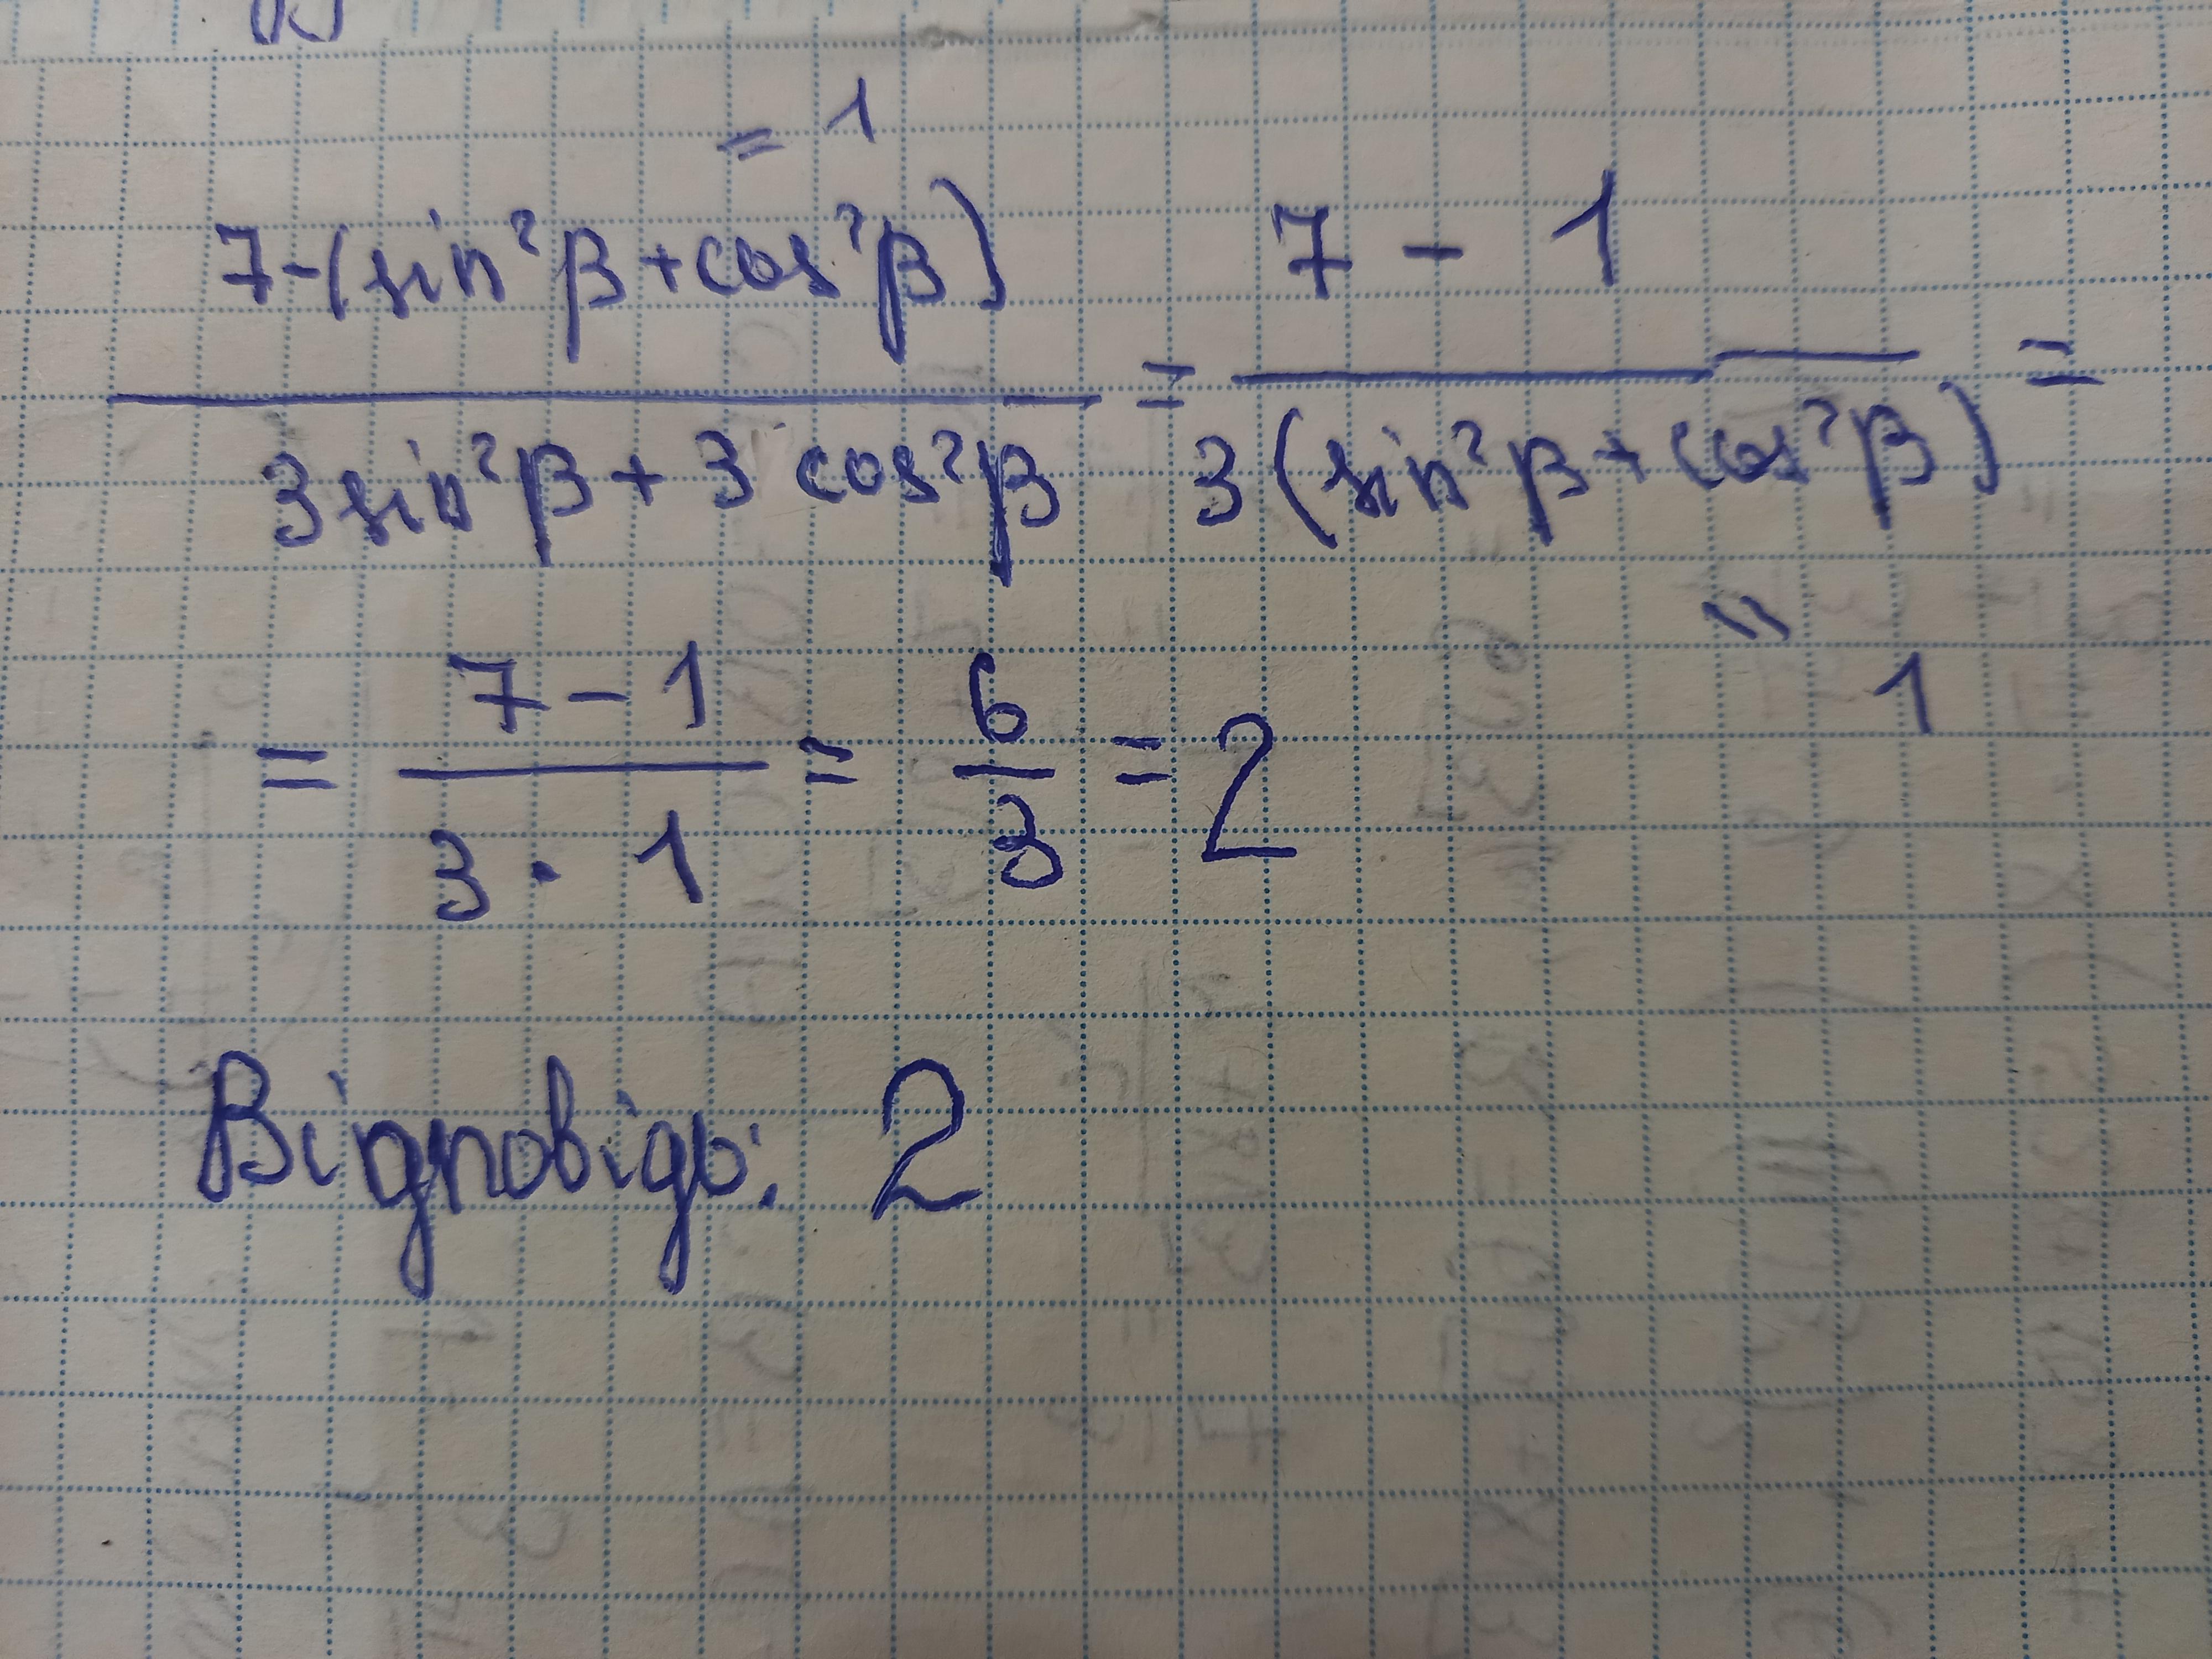 = 1
7-(sin²β+cos²β) / 3sin²β+3cos²β = 7-1 / 3(sin²β+cos²β) =
= 1
= 7-1 / 3·1 = 6/3 = 2
Відповідь: 2